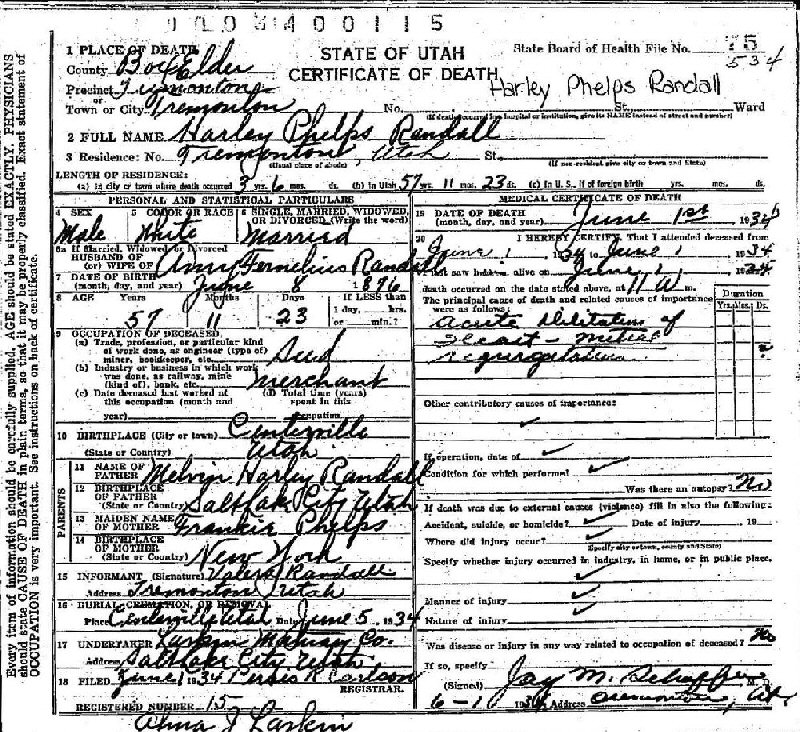 1 0 3 4 0 0 1 1 5
STATE OF UTAH
CERTIFICATE OF DEATH
State Board of Health File No. 75
534
Harley Phelps Randall
1 PLACE OF DEATH
County Box Elder
Precinct Tremonton
or
Town or City Tremonton No. St. Ward
(If death occurred in a hospital or institution, give its NAME instead of street and number)
2 FULL NAME Harley Phelps Randall
3 Residence: No. Tremonton, Utah St.
(Usual place of abode) (If non-resident give city or town and State)
LENGTH OF RESIDENCE:
(a) In city or town where death occurred 3 yrs. 6 mos. ds. (b) In Utah 57 yrs. 11 mos. 23 ds. (c) In U. S., if of foreign birth yrs. mos. ds.
PERSONAL AND STATISTICAL PARTICULARS
4 SEX
Male
5 COLOR OR RACE
White
6 SINGLE, MARRIED, WIDOWED, OR DIVORCED, (Write the word)
Married
6a If Married, Widowed or Divorced
HUSBAND OF
(or) WIFE OF Fernelius Randall
7 DATE OF BIRTH
(month, day, and year) June 8 1876
8 AGE Years Months Days If LESS than
1 day, hrs.
57 11 23 or min.?
9 OCCUPATION OF DECEASED
(a) Trade, profession, or particular kind
of work done, as engineer (type of)
miner, bookkeeper, etc. Seed
(b) Industry or business in which work
was done, as railway, mine
(kind of), bank, etc. merchant
(c) Date deceased last worked at (d) Total time (years)
this occupation (month and spent in this
year) occupation
10 BIRTHPLACE (City or town) Centerville
(State or Country) Utah
PARENTS
11 NAME OF
FATHER Melvin Harley Randall
12 BIRTHPLACE
OF FATHER
(State or Country) Salt Lake City Utah
13 MAIDEN NAME
OF MOTHER Frankie Phelps
14 BIRTHPLACE
OF MOTHER
(State or Country) New York
15 INFORMANT (Signature) Valera Randall
Address Tremonton Utah
16 BURIAL, CREMATION, OR REMOVAL
Place Centerville Utah Date June 5, 1934
17 UNDERTAKER Larkin Mortuary Co.
Address Salt Lake City, Utah
18 FILED June 1 1934 R Carlson
REGISTRAR.
REGISTERED NUMBER 15
Alma J Larkin
MEDICAL CERTIFICATE OF DEATH
19 DATE OF DEATH
(month, day, and year) June 1st 1934
20 I HEREBY CERTIFY, That I attended deceased from
June 1 1934 to June 1 1934
I last saw him alive on June 1 1934
death occurred on the date stated above, at 11 m.
The principal cause of death and related causes of importance
were as follows:
Duration
Yrs. Mos. Ds.
Acute Dilitation of
Heart - Mitral
regurgitation
Other contributory causes of importance:
If operation, date of
Condition for which performed
Was there an autopsy? No
If death was due to external causes (violence) fill in also the following:
Accident, suicide, or homicide? Date of injury 19
Where did injury occur?
Specify city or town, county and State
Specify whether injury occurred in industry, in home, or in public place.
Manner of injury
Nature of injury
Was disease or injury in any way related to occupation of deceased? No
If so, specify
(Signed) Jay M. M. D.
6-1 1934 Address Tremonton, Ut.
Every item of information should be carefully supplied. AGE should be stated EXACTLY. PHYSICIANS
should state CAUSE OF DEATH in plain terms, so that it may be properly classified. Exact statement of
OCCUPATION is very important. See instructions on back of certificate.